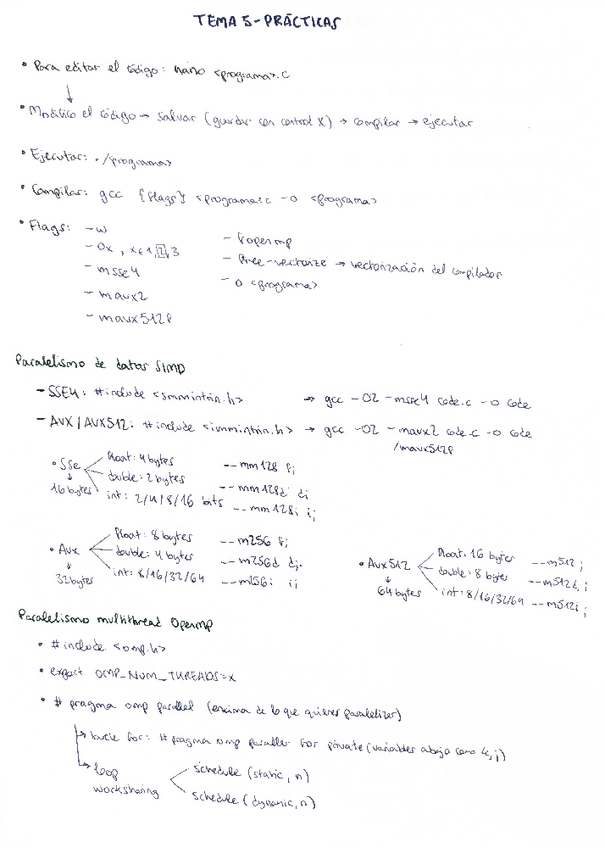 TEMA 5 - PRÁCTICAS
• Para editar el código: nano <programa>.c
• Modifico el código → salvar (guardar con control X) → compilar → ejecutar
• Ejecutar: ./<programa>
• Compilar: gcc {flags} <programa>.c -o <programa>
• Flags: -w
- Ox, x∈1,2,3
- msse4
- mavx2
- mavx512f
- fopenmp
- ftree-vectorize → vectorización del compilador
- o <programa>
Paralelismo de datos SIMD
- SSE4: #include <smmintrin.h> → gcc -O2 -msse4 code.c -o code
- AVX/AVX512: #include <immintrin.h> → gcc -O2 -mavx2 code.c -o code
/mavx512f
• Sse
16 bytes
float: 4 bytes --mm128 f;
double: 2 bytes --mm128d d;
int: 2/4/8/16 bits --mm128i i;
• Avx
32 bytes
float: 8 bytes --m256 f;
double: 4 bytes --m256d d;
int: 8/16/32/64 --m256i i;
• Avx512
64 bytes
float: 16 bytes --m512;
double: 8 bytes --m512d;
int: 8/16/32/64 --m512i;
Paralelismo multithread OpenMP
• #include <omp.h>
• export OMP_NUM_THREADS=x
• # pragma omp parallel (encima de lo que quieres paralelizar)
bucle for: # pragma omp parallel for private (variables abajo como k, j)
loop
worksharing
schedule (static, n)
schedule (dynamic, n)